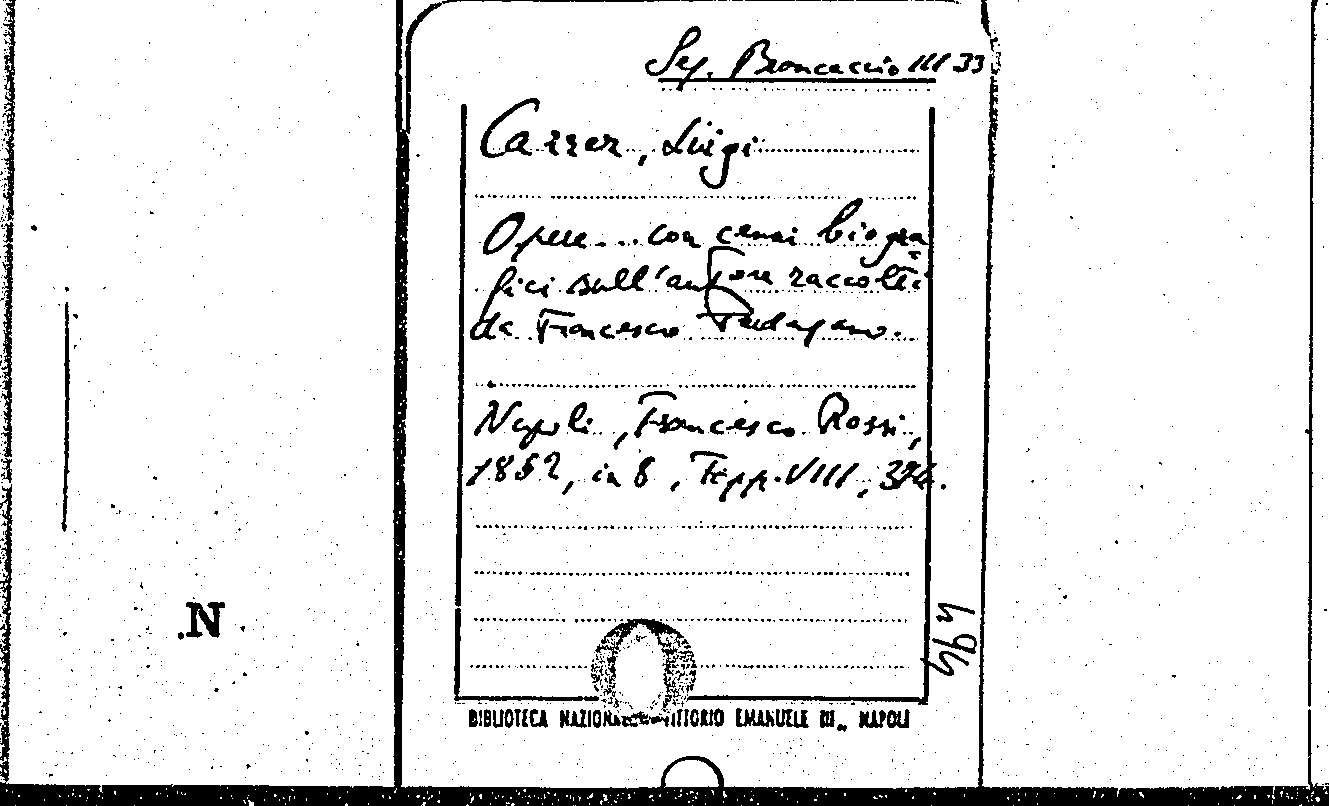 Sez. Brancaccio III 33
Carrer, Luigi
Opere... con cenni biogra
fici sull'autore raccolti
da Francesco Prudenzano.
Napoli, Francesco Rossi,
1852, in 8, pp. VIII, 394.
N
BIBLIOTECA NAZIONALE VITTORIO EMANUELE III„ NAPOLI